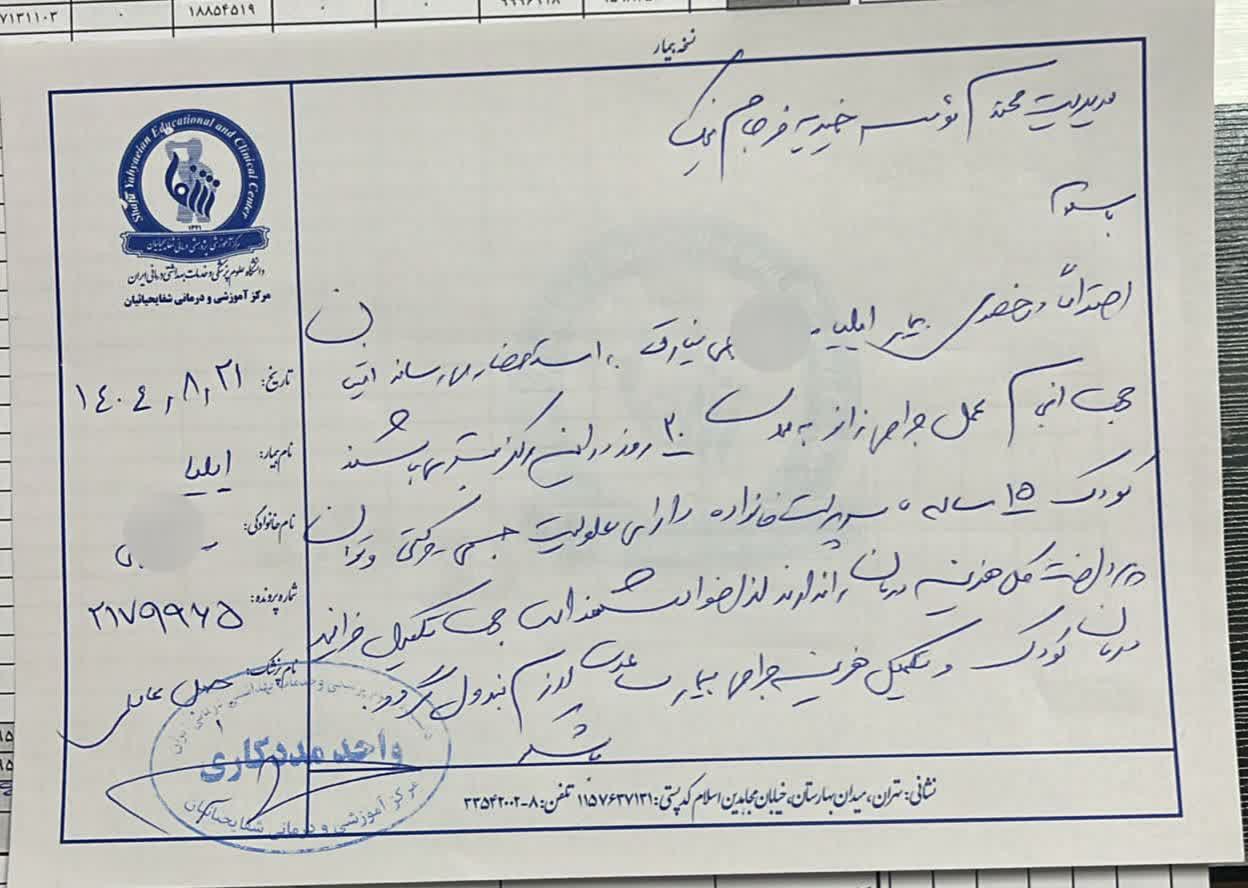 ۷۱۳۱۱۰۳
۱۸۸۵۴۵۱۹
نسخه بیمار
Shafa Yahyaeian Educational and Clinical Center
۱۳۲۱
مرکز آموزشی پژوهشی درمانی شفایحیائیان
دانشگاه علوم پزشکی و خدمات بهداشتی درمانی ایران
مرکز آموزشی و درمانی شفایحیائیان
تاریخ: ۱۴۰۴,۸,۲۱
نام بیمار: ایلیا
نام خانوادگی:
شماره پرونده: ۲۱۷۹۹۶۵
نام پزشک:
مدیریت محترم موسسه خیریه فرجام نیک
باسلام
احتراماً درخصوص بیمار ایلیا به استحضار می رساند
جهت انجام عمل جراحی زانو به مدت ۲۰ روز در این مرکز بستری می باشند
کودک ۱۵ ساله سرپرست خانواده دارای معلولیت جسمی حرکتی و توان
پرداخت کل هزینه درمان را ندارند لذا خواهشمند است جهت تکمیل فرایند
درمان کودک و تکمیل هزینه جراحی بیمار مساعدت لازم مبذول گردد.
باتشکر
واحد مددکاری
مرکز آموزشی و درمانی شفایحیائیان
نشانی: تهران، میدان بهارستان، خیابان مجاهدین اسلام کدپستی: ۱۱۵۷۶۳۷۱۳۱ تلفن: ۸-۳۳۵۴۲۰۰۲